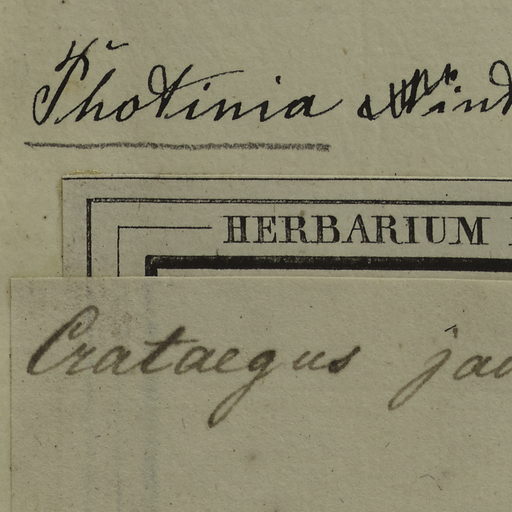 Photinia
HERBARIUM
Crataegus